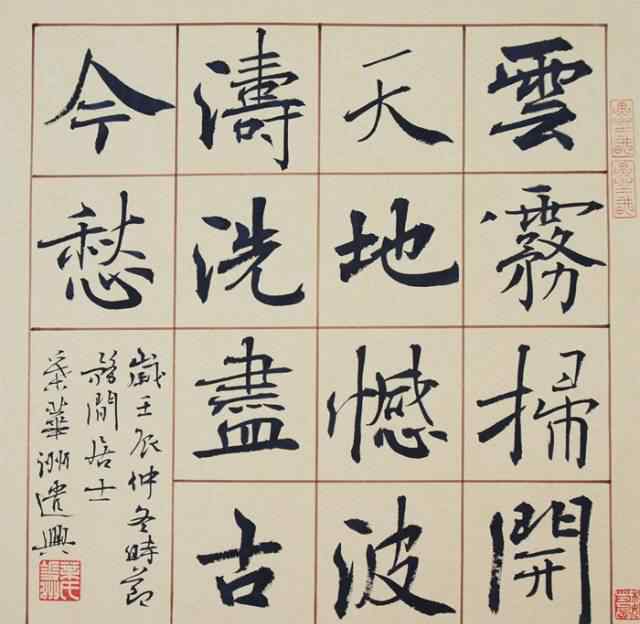 雲霧掃開
天地憾波
濤洗盡古
今愁
歲壬辰仲冬時節
居士
葉華洲遣興